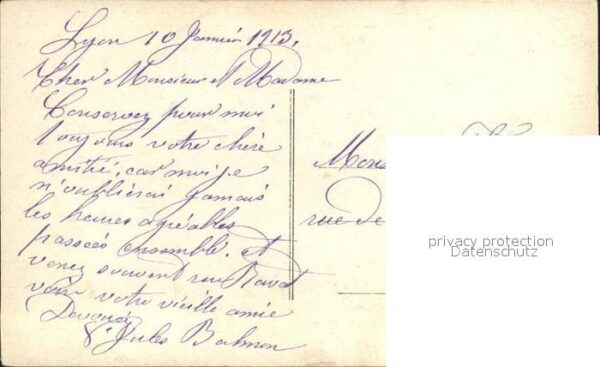 Lyon 10 Janvier 1913.
Cher Monsieur et Madame
Conservez pour moi
toujours votre chère
amitié, car moi je
n'oublierai jamais
les heures agréables
passées ensemble. et
venez souvent rue
voir votre vieille amie
Dévouée
Jules
Mons
rue de
privacy protection
Datenschutz